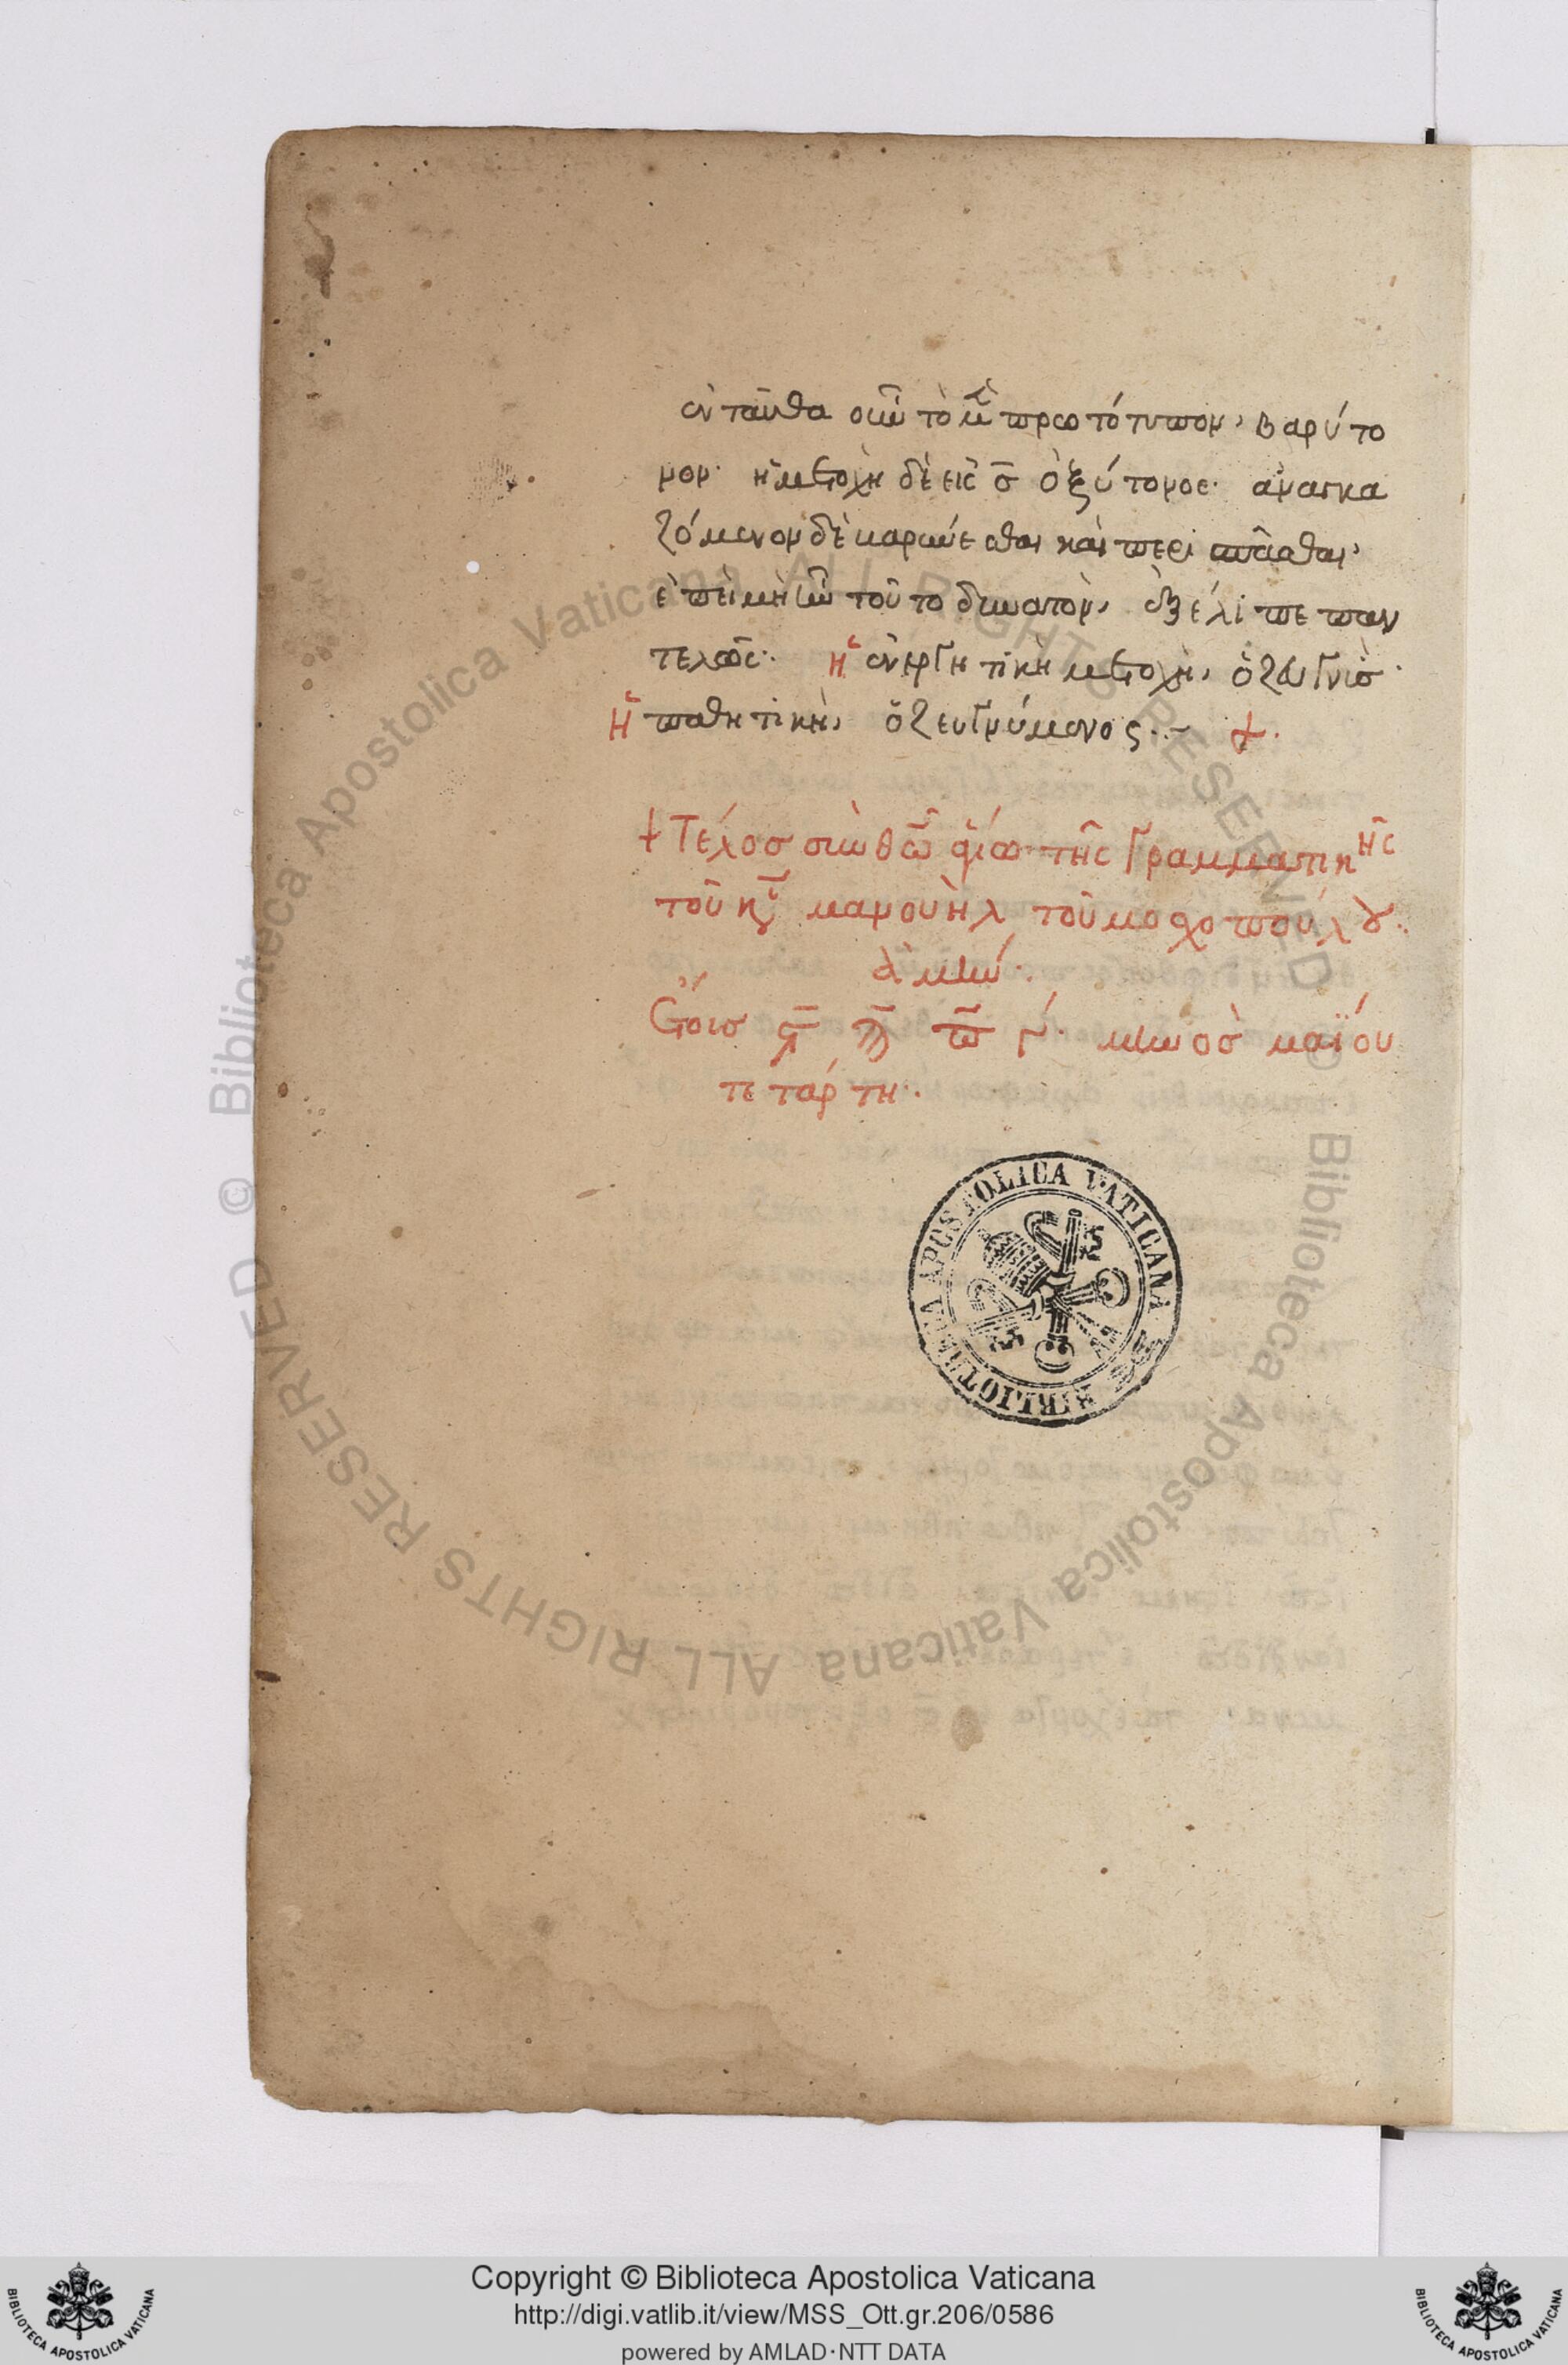 ἐνταῦθα οὖν τὸ μὲν πρωτότυπον, βαρύτο
νον· ἡ μετοχὴ δὲ εἰς σ̄ ὀξύτονος· ἀναγκα
ζόμενον δὲ βαρύνεσθαι καὶ περισπᾶσθαι,
ἐπεὶ μὴ ἦν τοῦτο δυνατὸν, ἐξέλιπε παν
τελῶς· ἡ ἐνεργητικὴ μετοχὴ, ὁ ζευγνύς·
ἡ παθητικὴ, ὁ ζευγνύμενος·
Τέλος σὺν θῶ ἁγίω τῆς γραμματικῆς
τοῦ κυ μανουὴλ τοῦ μοσχοπούλου·
ἀμήν·
τετάρτη·
BIBLIOTHECA APOSTOLICA VATICANA
© Biblioteca Apostolica Vaticana ALL RIGHTS RESERVED
© Biblioteca Apostolica Vaticana ALL RIGHTS RESERVED
Copyright © Biblioteca Apostolica Vaticana
http://digi.vatlib.it/view/MSS_Ott.gr.206/0586
powered by AMLAD·NTT DATA
BIBLIOTECA APOSTOLICA VATICANA
BIBLIOTECA APOSTOLICA VATICANA